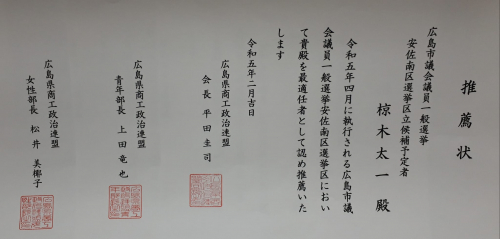 推薦状
広島市議会議員一般選挙
安佐南区選挙区立候補予定者
椋木太一 殿
令和五年四月に執行される広島市議
会議員一般選挙安佐南区選挙区におい
て貴殿を最適任者として認め推薦いた
します
令和五年二月吉日
広島県商工政治連盟
会長 平田圭司
広島県商工政治連盟
青年部長 上田竜也
広島県商工政治連盟
女性部長 松井美椰子